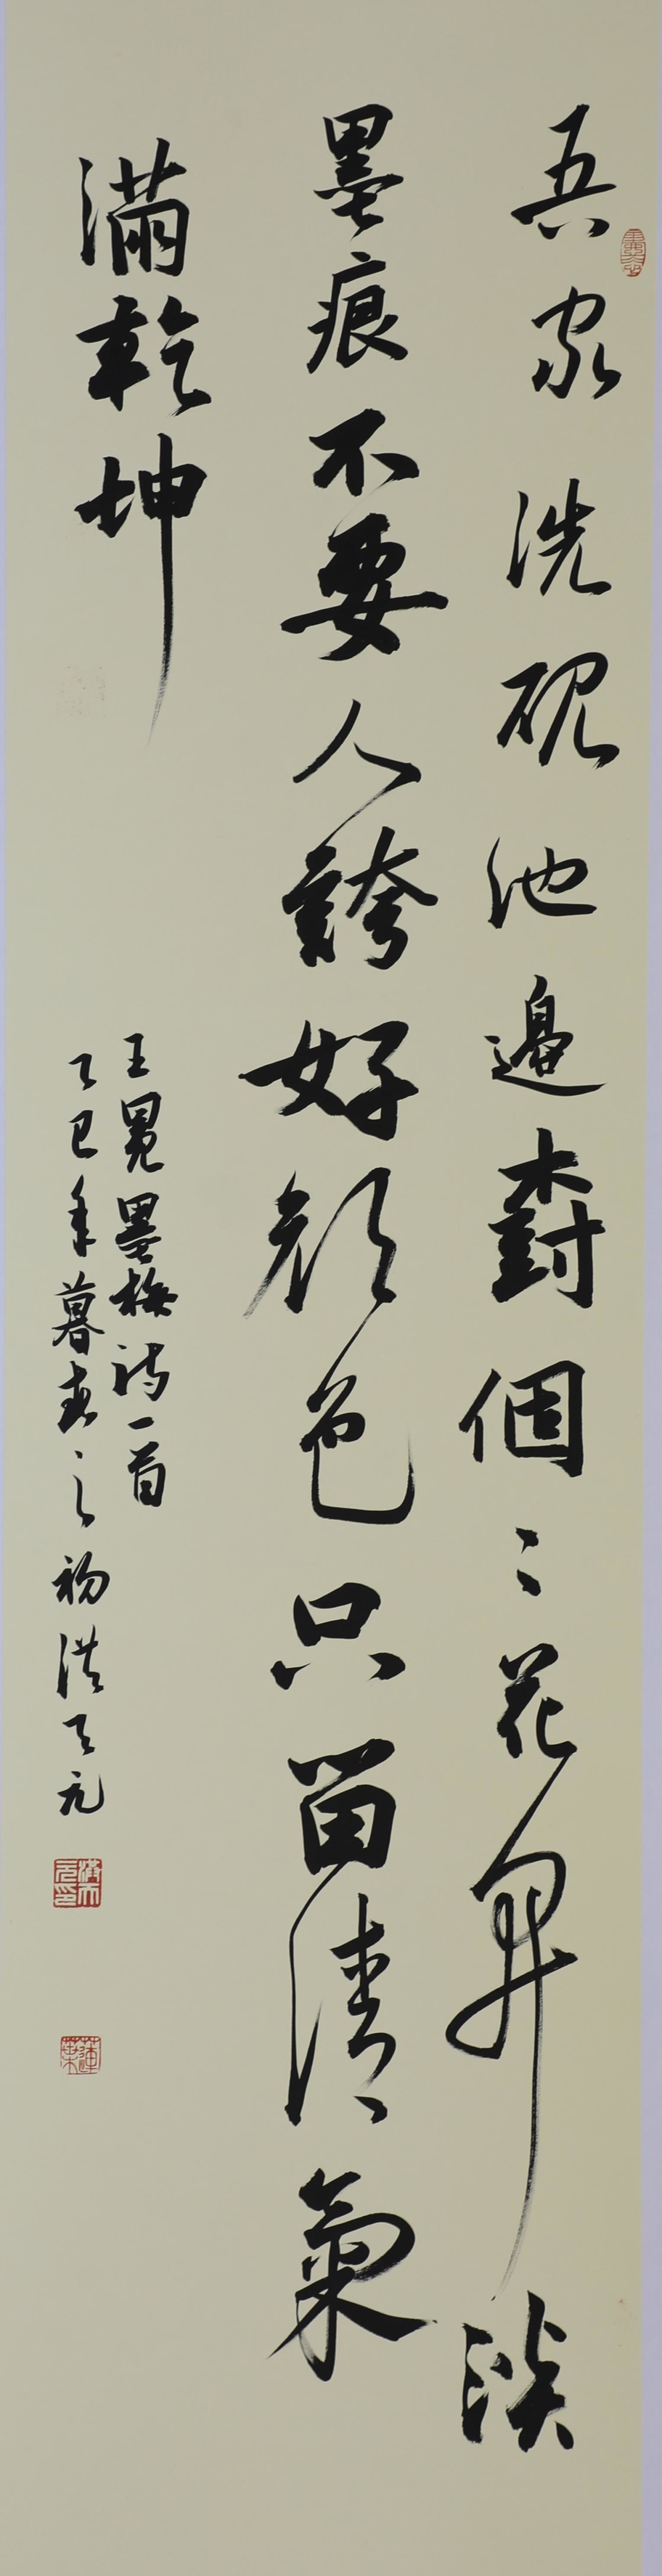 吾家洗硯池邊樹個〻花開淡
墨痕不要人誇好顏色只留清氣
滿乾坤
王冕墨梅詩一首
乙巳年暮春之初洪天元